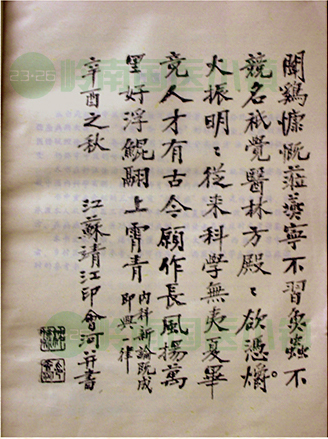 聞鷄慷慨蒞寧不習魚蟲不
競名祇覺醫林方殿〻欲憑爝
火振明〻從来科學無夷夏畢
竟人才有古今願作長風揚萬
里好浮鯤翮上霄青
內科新論既成
即興一律
辛酉之秋 江蘇靖江印會河并書
23-26 岭南国医小镇